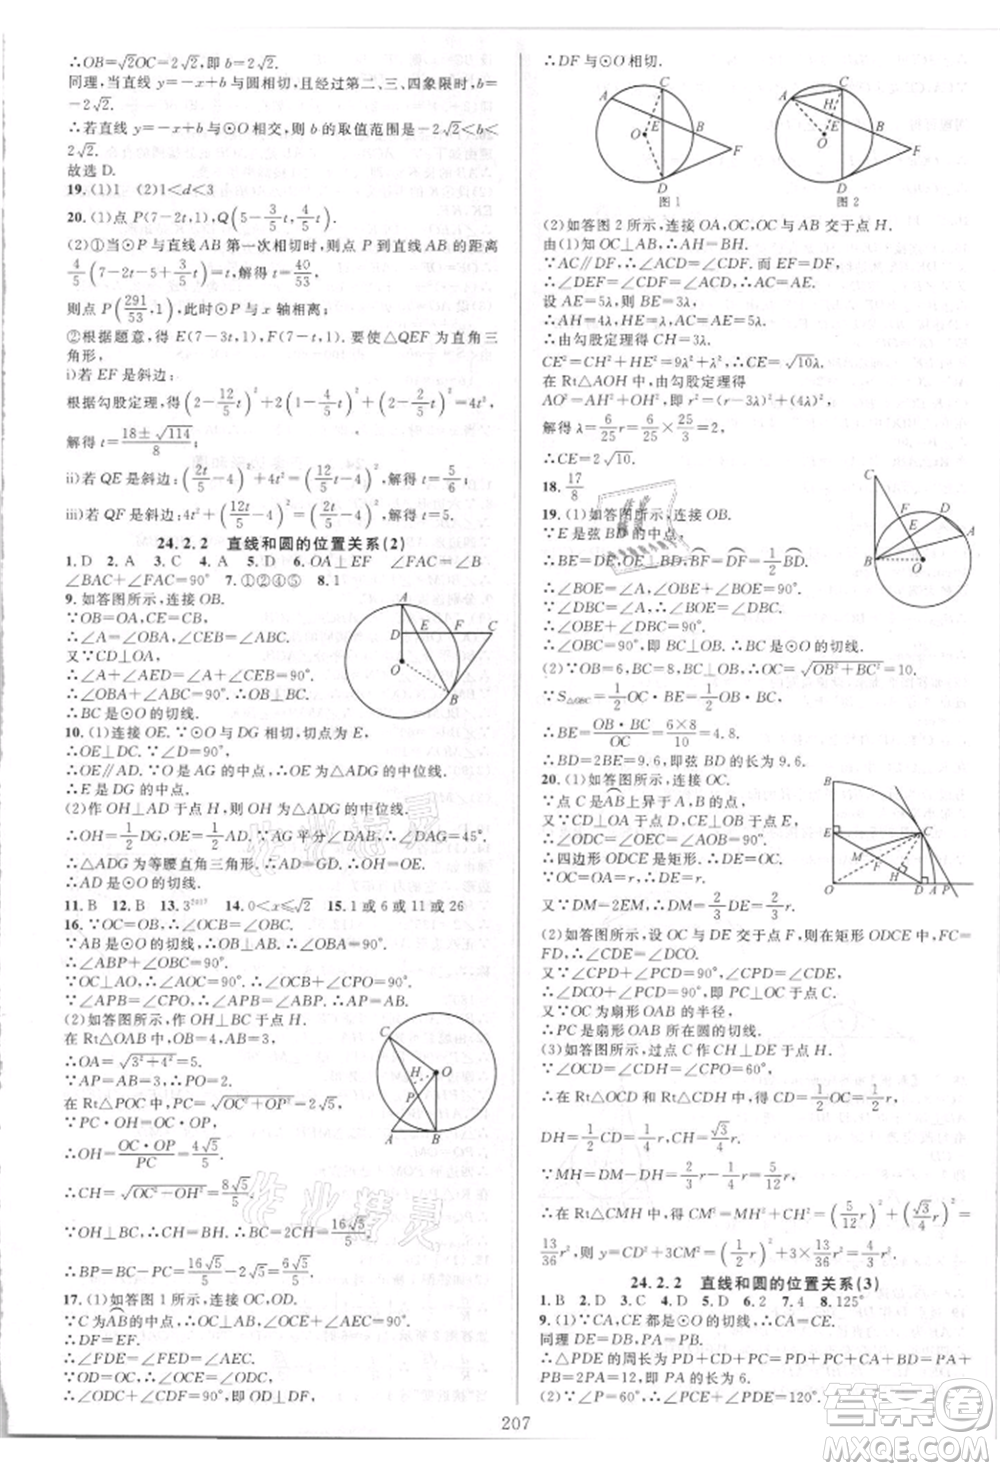 ∴OB=√2OC=2√2,即b=2√2.
同理,当直线y=-x+b与圆相切,且经过第二、三、四象限时,b=
-2√2.
∴若直线y=-x+b与⊙O相交,则b的取值范围是-2√2<b<
2√2.
故选D.
19.(1)1 (2)1<d<3
20.(1)点P(7-2t,1),Q(5-3/5t,4/5t).
(2)①当⊙P与直线AB第一次相切时,则点P到直线AB的距离
4/5(7-2t-5+3/5t)=t,解得t=40/53,
则点P(291/53,1),此时⊙P与x轴相离;
②根据题意,可得E(7-3t,1),F(7-t,1).要使△QEF为直角三
角形,
i)若EF是斜边;
根据勾股定理,得(2-12/5t)²+2(4/5t-1)²+(2-2/5t)²=4t²,
解得t=(18±√114)/8;
ii)若QE是斜边:(2t/5-4)+4t²=(12/5t-2)²,解得t=5/6;
iii)若QF是斜边:4t²+(12/5t-2)²=(2t/5-4)²,解得t=5.
24.2.2 直线和圆的位置关系(2)
1.D 2.A 3.C 4.A 5.C 6.OA⊥EF ∠FAC=∠B
∠BAC+∠FAC=90° 7.①②④⑤ 8.1
9.如答图所示,连接OB.
∵OB=OA,CE=CB,
∴∠A=∠OBA,∠CEB=∠ABC.
又∵CD⊥OA,
∴∠A+∠AED=∠A+∠CEB=90°.
∴∠OBA+∠ABC=90°.∴OB⊥BC.
∴BC是⊙O的切线.
10.(1)连接OE.∵⊙O与DG相切,切点为E,
∴OE⊥DC.∵∠D=90°,
∴OE∥AD.∵O是AG的中点,∴OE为△ADG的中位线.
∴E是DG的中点.
(2)作OH⊥AD于点H,则OH为△ADG的中位线.
∴OH=1/2DG=1/2AD.∵AG平分∠DAB,∴∠DAG=45°.
∴△ADG为等腰直角三角形.∴AD=GD.∴OH=1/2AD.
∴AD是⊙O的切线.
11.B 12.B 13.3²⁰¹⁷ 14.0<x≤√2 15.1或6或11或26
16.∵OC=OB,∴∠OCB=∠OBC.
∵AB是⊙O的切线,∴OB⊥AB.
∴∠ABP+∠OBC=90°.
∵OC⊥AO,∴∠OCB+∠CPO=90°.
∵∠APB=∠CPO,∴∠APB=∠ABP.∴AP=AB.
(2)如答图所示,作OH⊥BC于点H.
在Rt△OAB中,∵OB=4,AB=3,
∴OA=√(3²+4²)=5.
∵AP=AB=3,∴PO=2.
在Rt△POC中,PC=√(OC²+OP²)=2√5.
∵PC·OH=OC·OP,
∴OH=OC·OP/PC=4√5/5.
∴CH=√(OC²-OH²)=8√5/5.
∵OH⊥BC,∴CH=BH.∴BC=2CH=16√5/5.
∴BP=BC-PC=16√5/5-2√5=6√5/5.
17.(1)如答图1所示,连接OC,OD.
∵C为AB的中点,∴OC⊥AB.
∵DF=EF,
∴∠FDE=∠FED=∠AEC.
∵OD=OC,∴∠ODC=∠OCD.
∴∠ODC+∠CDF=90°.∴OD⊥DF.
∴DF与⊙O相切.
A C O E B F D 图1
A C H E O B F D 图2
(2)如答图2所示,连接OA,OC,OC与AB交于点H.
由(1)知OC⊥AB,∴AH=BH.
∵AC∥DF,∴∠ACD=∠CDF.而EF=DF,
∴∠DEF=∠CDF=∠ACD.∴AC=AE.
设AE=5λ,∴AC=5λ,EH=λ.
∴AH=4λ.∴由勾股定理,得CH=3λ.
CE²=CH²+HE²=9λ²+λ²,∴CE=√10λ.
在Rt△AOH中,由勾股定理得
AO²=AH²+OH²,即r²=(r-3λ)²+(4λ)².
解得λ=6/25r=6/25×25/3=2.
∴CE=2√10.
18.17/8
19.(1)如答图所示,连接OB.
∵E是弦BD的中点,
∴BE=DE,OE⊥BD,BF=DF=1/2BD.
∴∠BOE=∠A,∠OBE+∠BOE=90°.
∵∠DBC=∠A,∴∠BOE=∠DBC.
∴∠OBE+∠DBC=90°.
∴∠OBC=90°,即BC⊥OB.∴BC是⊙O的切线.
(2)∵OB=6,BC=8,BC⊥OB,∴OC=√(OB²+BC²)=10.
∵S△OBC=1/2OC·BE=1/2OB·BC,
∴BE=OB·BC/OC=6×8/10=4.8.
∴BD=2BE=9.6,即弦BD的长为9.6.
20.(1)如答图所示,连接OC.
∵点C是AB上异于A,B的点,
又CD⊥OA,CE⊥OB,
∴∠ODC=∠OEC=∠AOB=90°.
∴四边形ODCE是矩形.∴DE=OC.
∵OC=OA=r,∴DE=r.
又∵DM=2EM,∴DM=2/3DE=2/3r.
(2)如答图所示,设OC与DE交于点F,则在矩形ODCE中,FC=
FD,∴∠CDE=∠DCO.
又∵∠CPD+∠PCD=90°,∠CPO=∠CDE,
∴∠DCO+∠PCD=90°,即PC⊥OC于点C.
又∵OC为扇形OAB的半径,
∴PC是扇形OAB所在的圆的切线.
(3)如答图所示,过点C作CH⊥DE于点H.
∵∠OCD=∠CDE=∠CPO=60°,
∴在Rt△OCD和Rt△CDH中,CD=1/2OC=1/2r,
DH=1/2CD=1/4r,CH=√3/4r.
∵MH=DM-DH=2/3r-1/4r=5/12r,
∴在Rt△CMH中,CM²=MH²+CH²=(5/12r)²+(√3/4r)²=
13/36r²,则y=OD²+3CM²=(√3/2r)²+3×13/36r²=11/6r².
24.2.2 直线和圆的位置关系(3)
1.B 2.D 3.C 4.D 5.D 6.2 7.4 8.125°
9.(1)∵CA,CE都是⊙O的切线,∴CA=CE.
同理DE=DB,PA=PB.
∴△PDE的周长为PD+CD+PC=PD+PC+CA+BD=PA+
PB=2PA=12,即PA的长为6.
(2)∵∠P=60°,∴∠PCE+∠PDE=120°.
207
作业精灵
作业精灵
答案圈
MXQE.COM